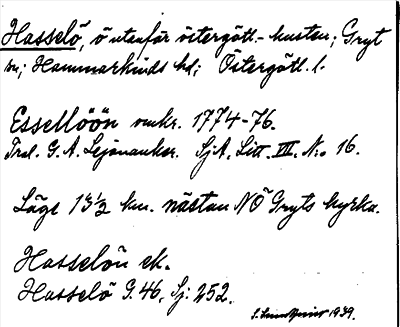 Hasselö, ö utanför östergötl.-kusten; Gryt
sn; Hammarkinds hd; Östergötl. l.
Essellöön omkr. 1774-76.
Trol. G. A. Lejonanker. SjA, Litt. III. N:o 16.
Läge 13½ km. nästan NÖ Gryts kyrka.
Hasselön ek.
Hasselö G. 46, Sj: 252.
1939.